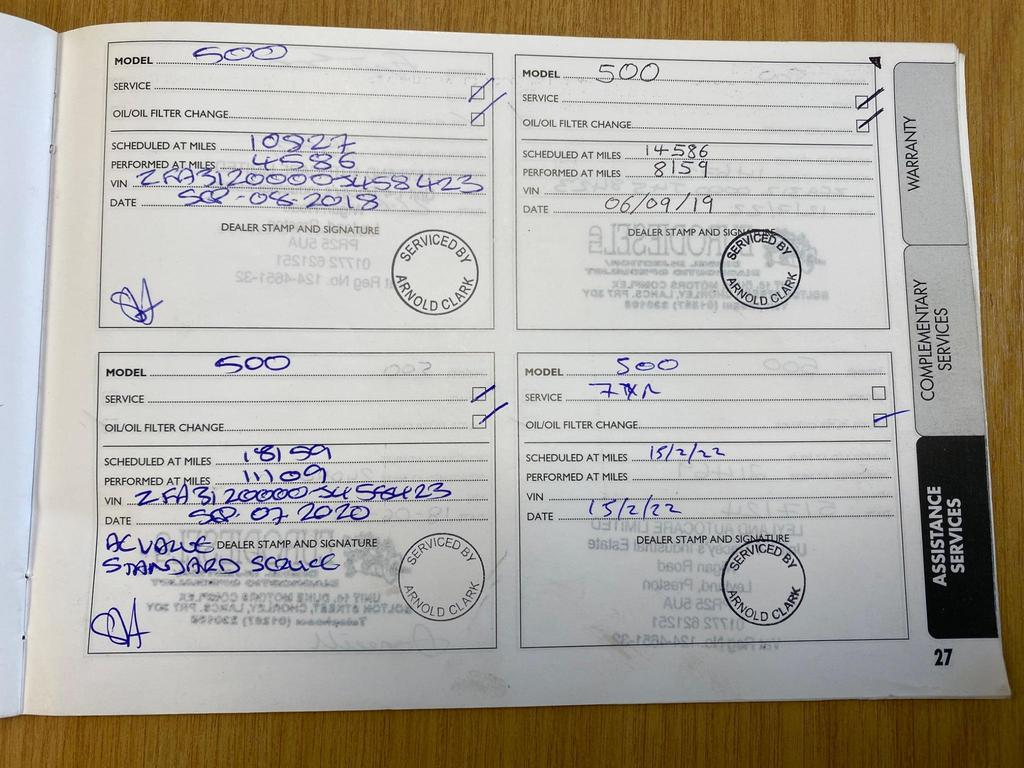 MODEL 500
SERVICE
OIL/OIL FILTER CHANGE
SCHEDULED AT MILES 10527
PERFORMED AT MILES 4586
VIN ZFA3120000J458423
DATE SEP-08-2018
DEALER STAMP AND SIGNATURE
SERVICED BY
ARNOLD CLARK
MODEL 500
SERVICE
OIL/OIL FILTER CHANGE
SCHEDULED AT MILES 14586
PERFORMED AT MILES 8159
VIN
DATE 06/09/19
DEALER STAMP AND SIGNATURE
SERVICED BY
ARNOLD CLARK
MODEL 500
SERVICE
OIL/OIL FILTER CHANGE
SCHEDULED AT MILES 18159
PERFORMED AT MILES 11109
VIN ZFA3120000J458423
DATE SEP 07 2020
AC VALUE
DEALER STAMP AND SIGNATURE
STANDARD SERVICE
SERVICED BY
ARNOLD CLARK
MODEL 500
SERVICE
OIL/OIL FILTER CHANGE
SCHEDULED AT MILES 15/2/22
PERFORMED AT MILES
VIN
DATE 15/2/22
DEALER STAMP AND SIGNATURE
SERVICED BY
ARNOLD CLARK
WARRANTY
COMPLEMENTARY
SERVICES
ASSISTANCE
SERVICES
27